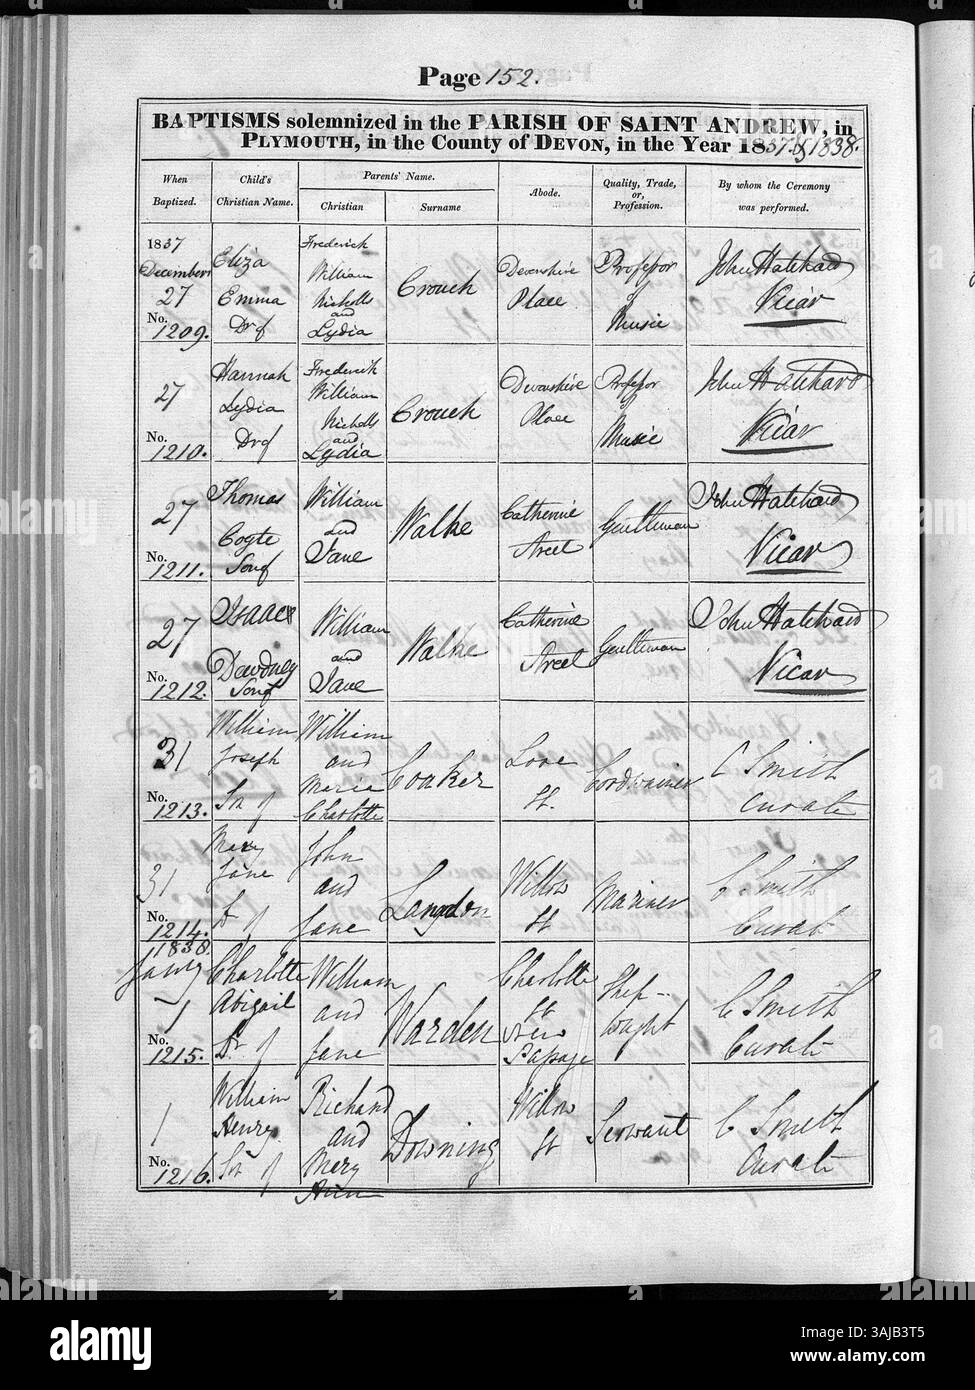 Page 152.
BAPTISMS solemnized in the PARISH OF SAINT ANDREW, in
PLYMOUTH, in the County of DEVON, in the Year 1837. & 1838.
When Baptized.
Child's Christian Name.
Parents' Name.
Christian
Surname
Abode.
Quality, Trade, or, Profession.
By whom the Ceremony was performed.
1837 December 27 No. 1209.
Eliza Emma Dr of
Frederick William Nicholls and Lydia
Crouch
Devonshire Place
Professor of Music
John Hatchard Vicar
27 No. 1210.
Hannah Lydia Dr of
Frederick William Nicholls and Lydia
Crouch
Devonshire Place
Professor of Music
John Hatchard Vicar
27 No. 1211.
Thomas Son of
William and Jane
Walke
Catherine Street
Gentleman
John Hatchard Vicar
27 No. 1212.
Isaac Dewdney Son of
William and Jane
Walke
Catherine Street
Gentleman
John Hatchard Vicar
31 No. 1213.
William Joseph Sn of
William and Maria Charlotte
Coaker
Love St.
Cordwainer
C Smith Curate
31 No. 1214.
Mary Jane Dr of
John and Jane
Langdon
Willow St
Mariner
C Smith Curate
1838. Jany 1 No. 1215.
Charlotte Abigail Dr of
William and Jane
Warden
Charlotte St New Passage
Ship-wright
C Smith Curate
1 No. 1216.
William Henry Sn of
Richard and Mary Ann
Downing
Willow St
Servant
C Smith Curate
alamy
Image ID: 2AJB3T5
www.alamy.com